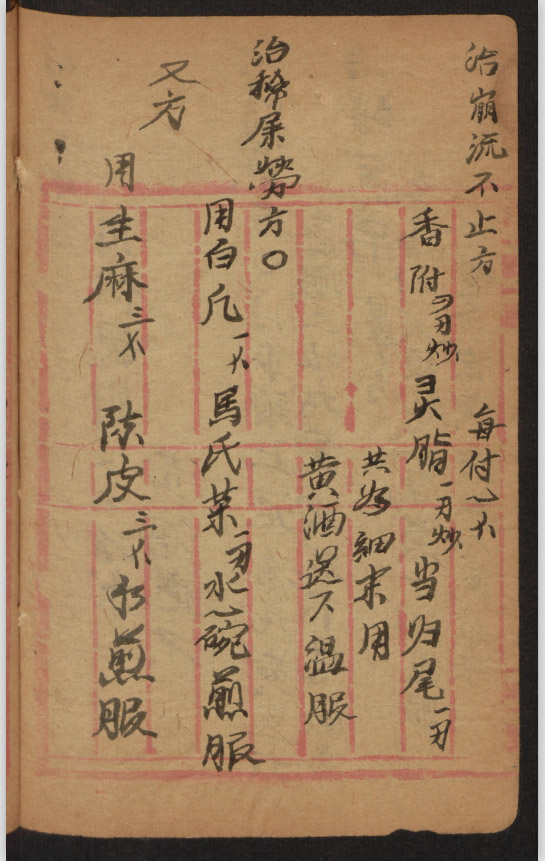 治崩流不止方
每付一大
香附一刃炒 灵脂一刃炒 当归尾一刃
共为細末用
黄酒送下温服
治稀屎劳方〇
用白凡一大 馬氏菜一刃 水一碗煎服
又方
用生麻三大 陈皮三大 水煎服